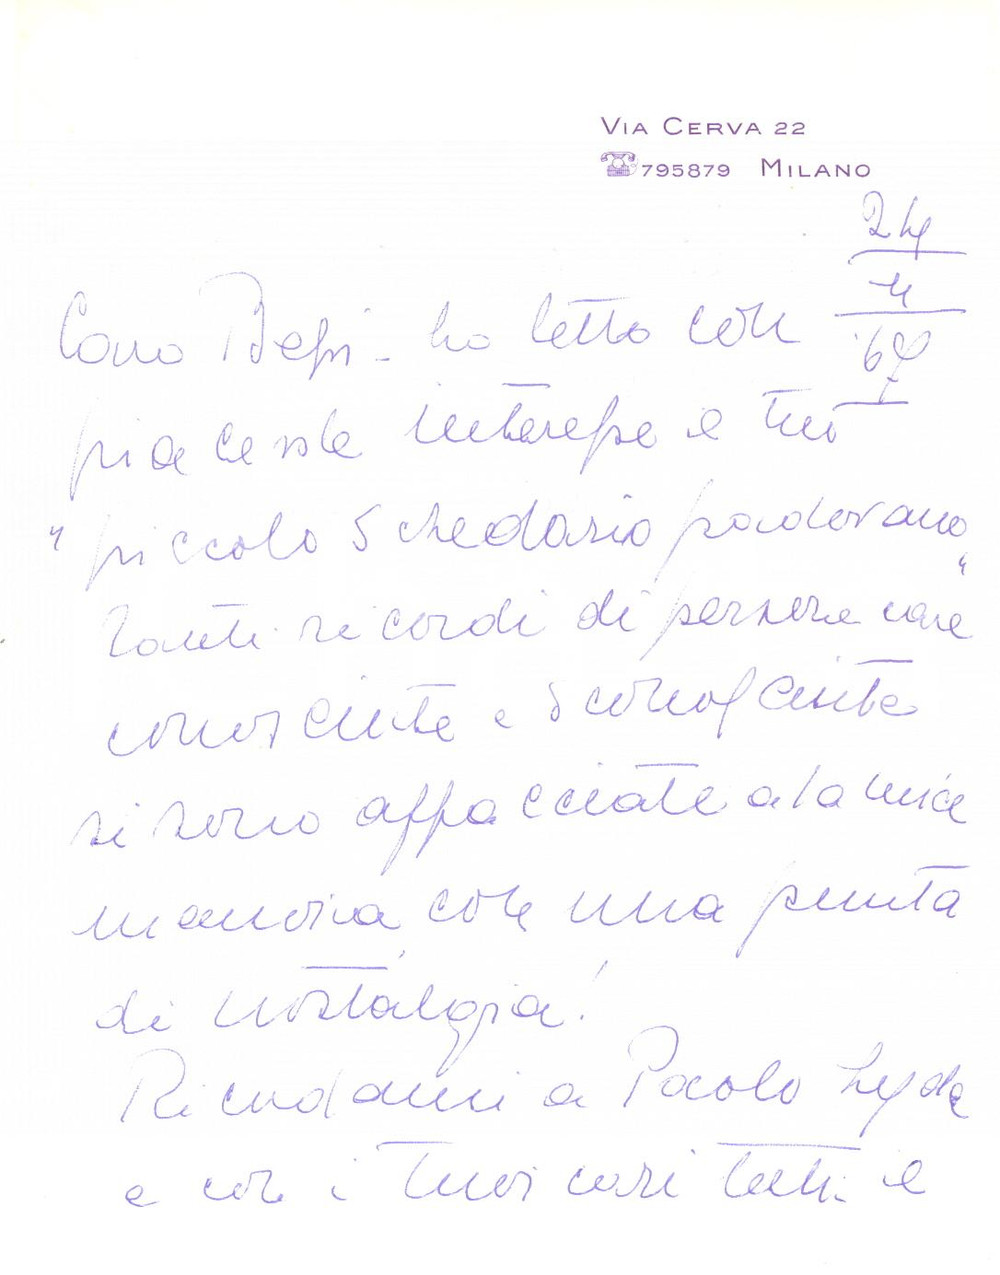 VIA CERVA 22
☎795879 MILANO
24
4
'67
Caro Bepi - ho letto con
piacevole interesse il Tuo
"piccolo Schedario padovano"
Tanti ricordi di persone care
conosciute e sconosciute
si sono affacciate a la mia
memoria con una punta
di nostalgia!
Ricordami a Paolo Lyda
e con i Tuoi cari tutti il